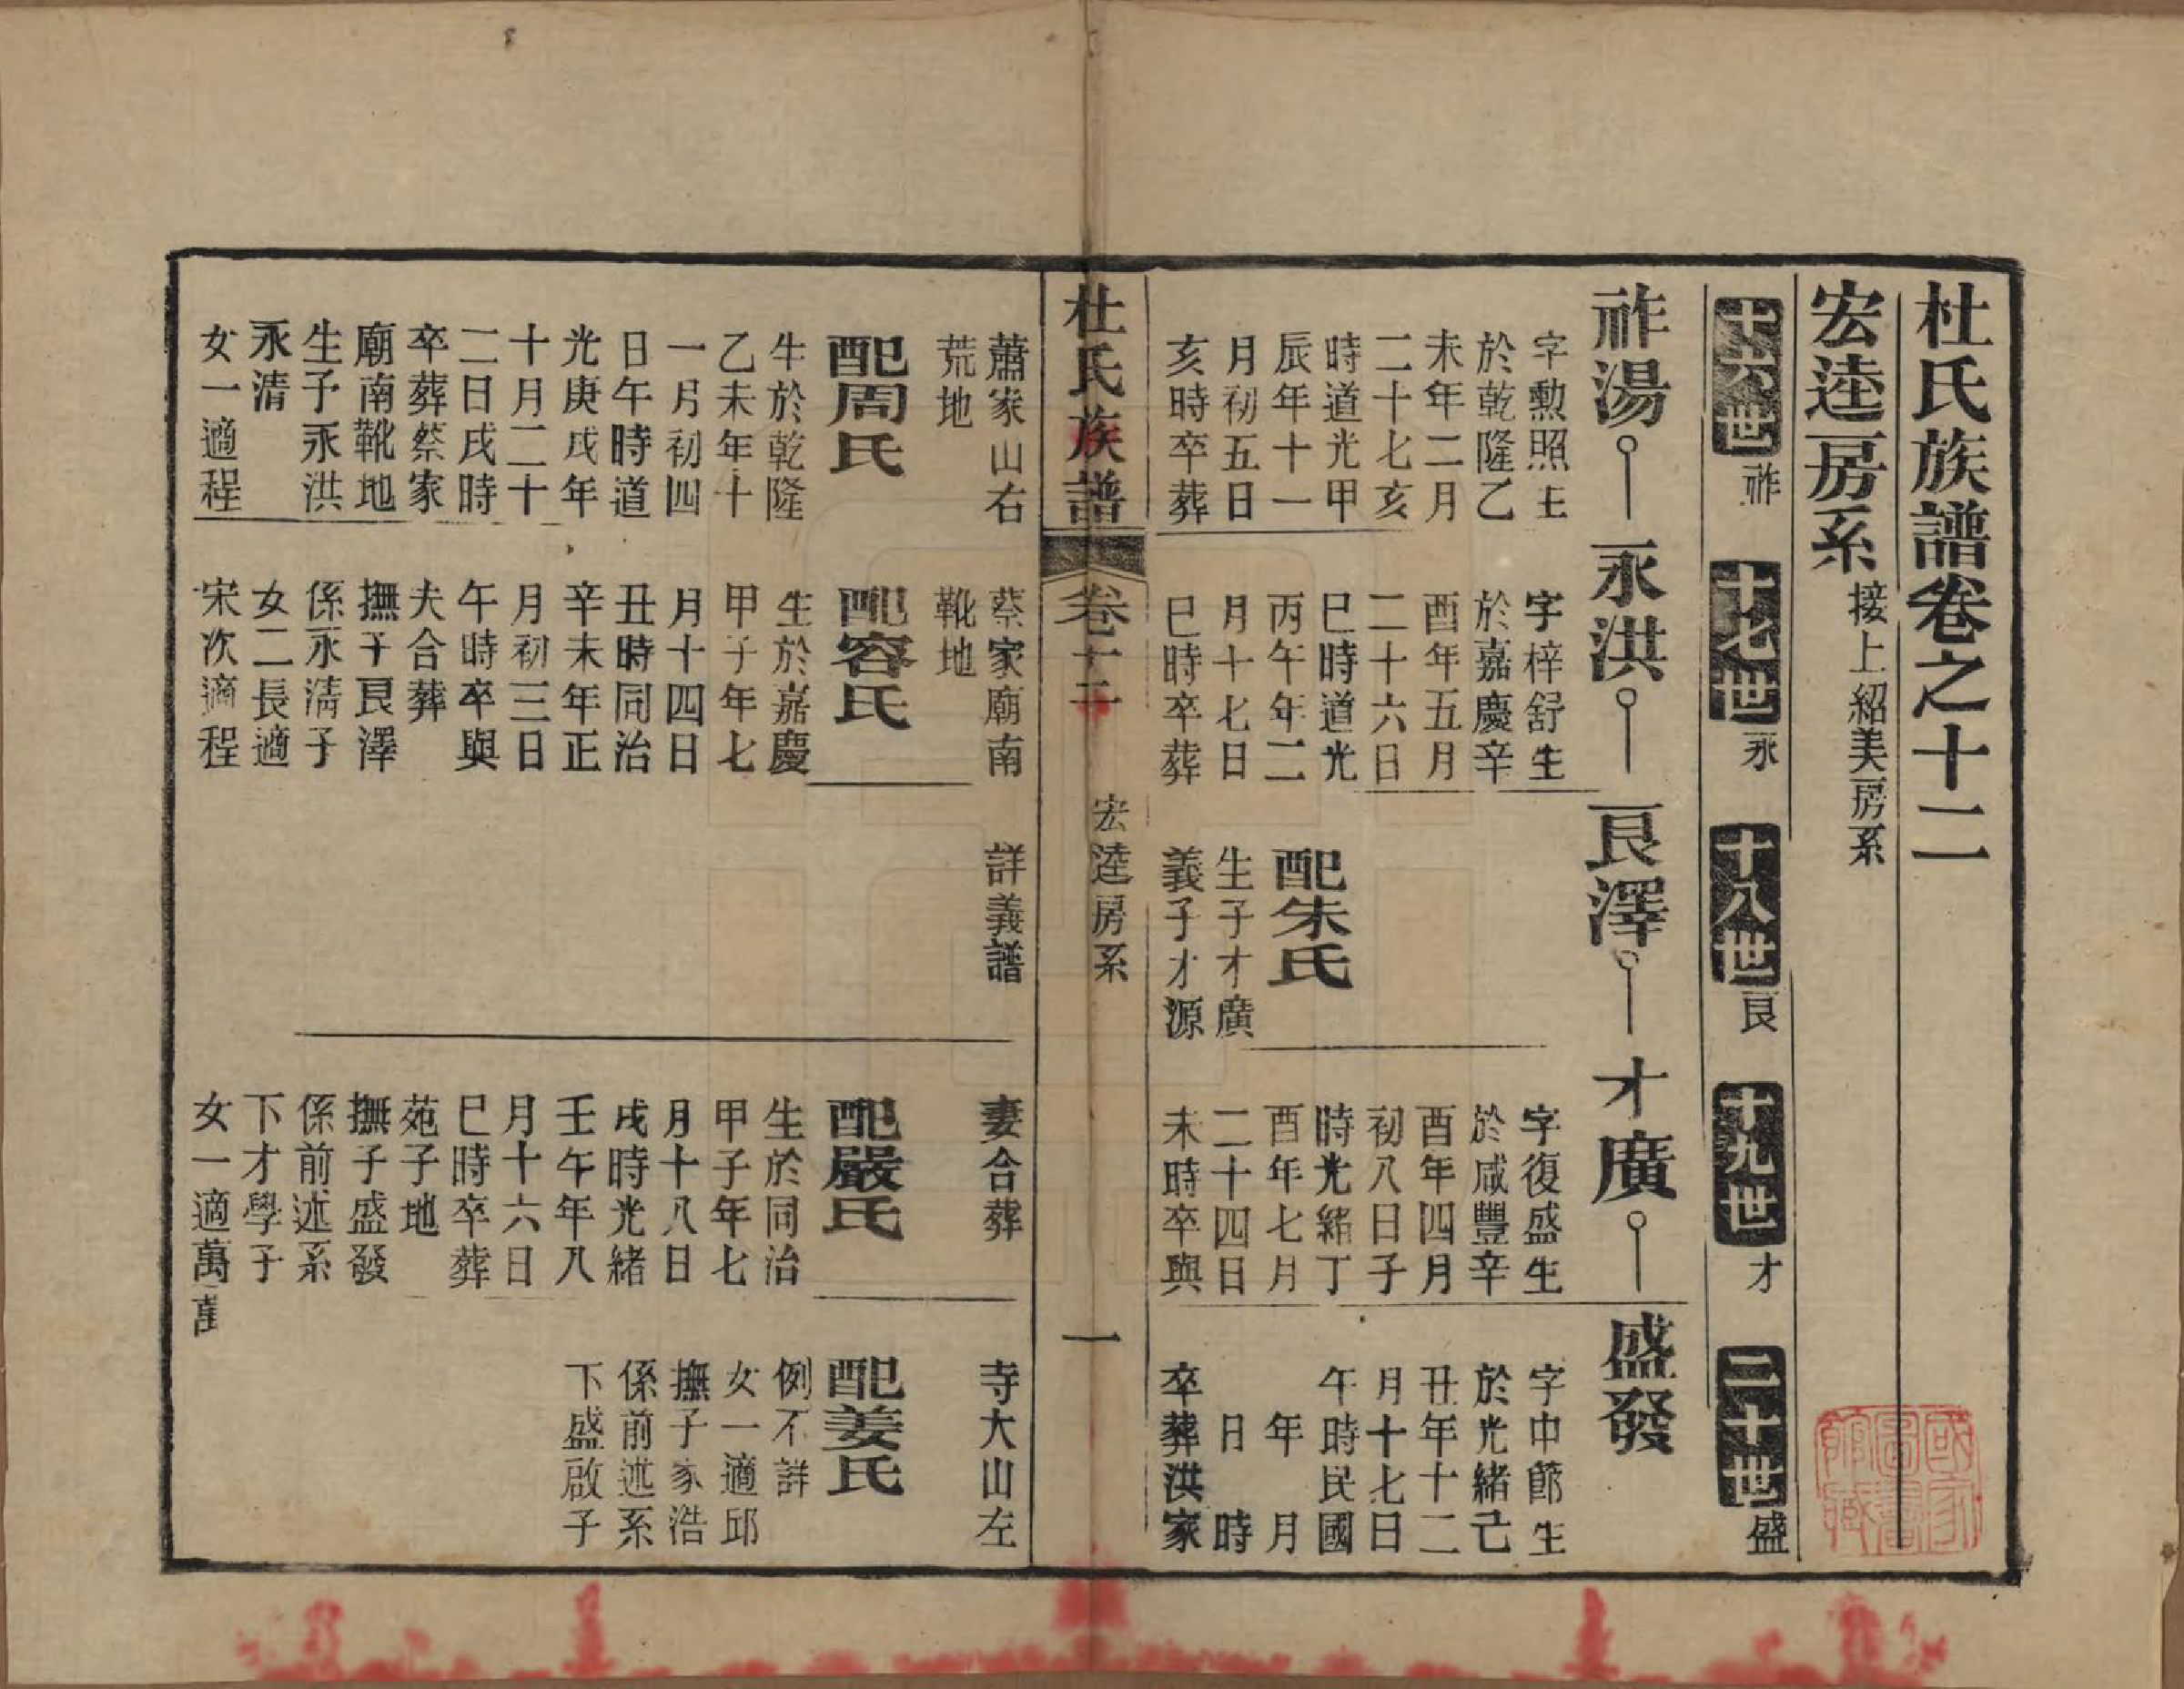 杜氏族譜卷之十二
宏逵房系 接上紹美房系
十六世 祚
十七世 永
十八世 艮
十九世 才
二十世 盛
祚湯
字勲照生
於乾隆乙
未年二月
二十七亥
時道光甲
辰年十一
月初五日
亥時卒葬
蕭家山右
荒地
配周氏
生於乾隆
乙未年十
一月初四
日午時道
光庚戌年
十月二十
二日戌時
卒葬蔡家
廟南靴地
生子永洪
永清
女一適程
永洪
字梓舒生
於嘉慶辛
酉年五月
二十六日
巳時道光
丙午年二
月十七日
巳時卒葬
蔡家廟南
靴地
配容氏
生於嘉慶
甲子年七
月十四日
丑時同治
辛未年正
月初三日
午時卒與
夫合葬
撫子艮澤
係永清子
女二長適
宋次適程
艮澤
配朱氏
生子才廣
義子才源
詳義譜
才廣
字復盛生
於咸豐辛
酉年四月
初八日子
時光緒丁
酉年七月
二十四日
未時卒與
妻合葬
配嚴氏
生於同治
甲子年七
月十八日
戌時光緒
壬午年八
月十六日
巳時卒葬
苑子地
撫子盛發
係前述系
下才學子
女一適萬
盛發
字中節生
於光緒己
丑年十二
月十七日
午時民國
年 月
日 時
卒葬洪家
寺大山左
配姜氏
例不詳
女一適邱
撫子家浩
係前述系
下盛啟子
杜氏族譜 卷十二 宏逵房系 一
國家圖書館藏